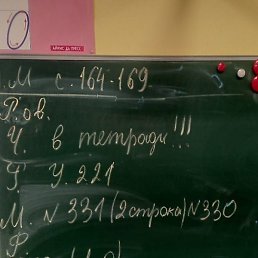 О
М с. 164-169
Р.ов.
Ч. в тетради!!!
У. 221
М. N 331 (2 строка) N330